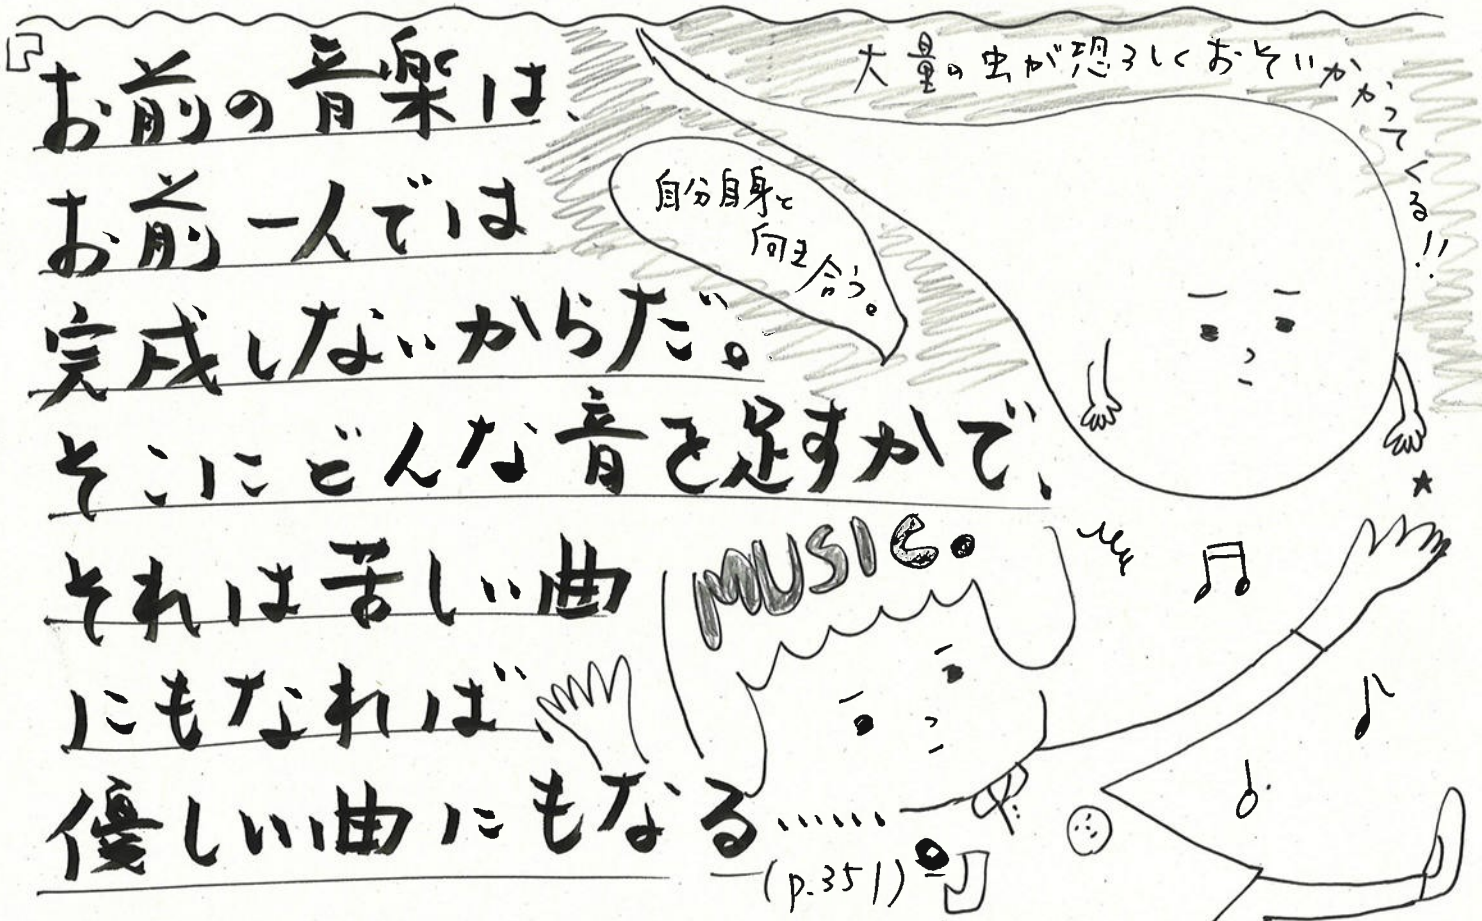 『お前の音楽は、
お前一人では
完成しないからだ。
そこにどんな音を足すかで、
それは苦しい曲
にもなれば、
優しい曲にもなる……
(p.351)』
大量の虫が恐ろしくおそいかかってくる!!
自分自身と
向き合う。
MUSIC.